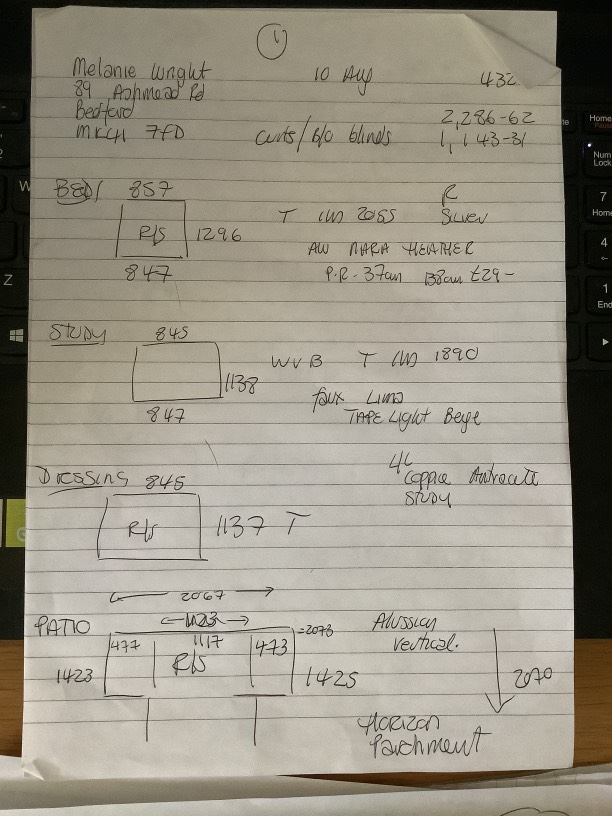 1
Melanie Wright 10 Aug 432
89 Ashmead Rd
Bedford 2,286-62
MK41 7FD curts/B/O blinds 1,143-31
BED1 857 R
R/S 1296 T 2055 Silver
AW MARIA HEATHER
847 P.R. - 37cm 138cm £29-
STUDY 845
1138 WVB T 1890
faux
847 TAPE Light Beige
DRESSING 845 4C
Coppice Antracite
R/S 1137 T STUDY
2067
PATIO 1123 =2073 Allusion
477 1117 473 Vertical.
1423 R/S 1425 2070
Horizon
Parchment
Home
Num
Lock
7
Home
4
1
End
W
Z